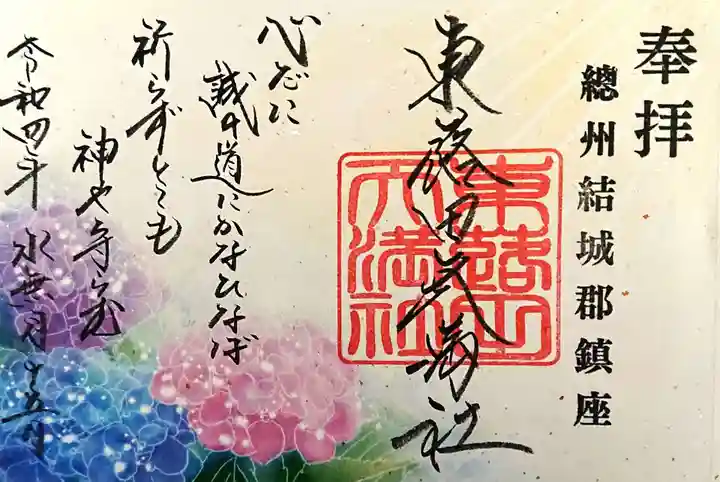 奉拝
總州結城郡鎮座
東蕗田天満社
東蕗田天満社
心だに
誠の道にかなひなば
祈らずとても
神や守らん
令和四年 水無月十五日